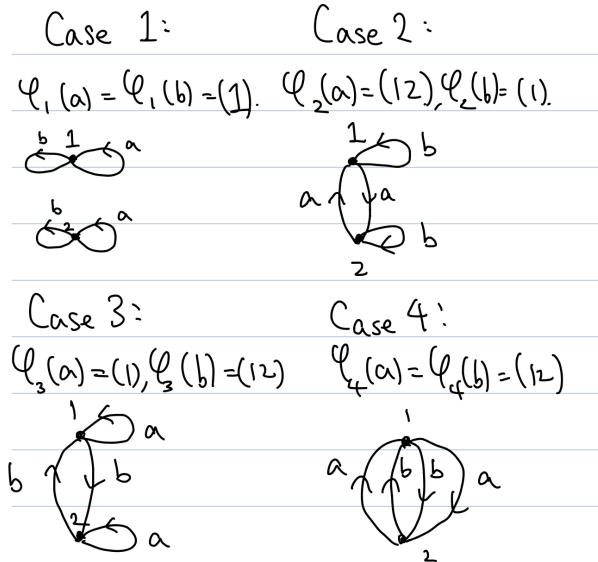 Case 1:
φ₁(a) = φ₁(b) = (1).
b 1 a
b 2 a
Case 2:
φ₂(a) = (12), φ₂(b) = (1).
1 b
a a
b
2
Case 3:
φ₃(a) = (1), φ₃(b) = (12)
1
a
b b
2
a
Case 4:
φ₄(a) = φ₄(b) = (12)
1
a b b a
2